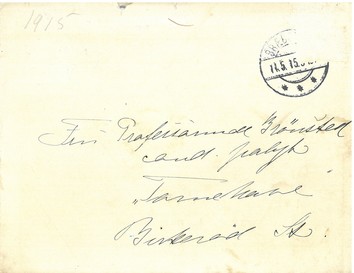 1915
11.5.15
Fru Professorinde Brönsted
cand. polyt
"Tornehave"
Birkeröd St.